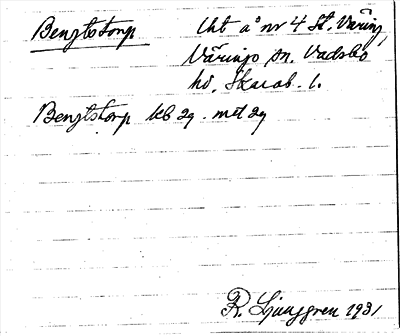 Bengtstorp  Lht å nr 4 St. Väring,
Värings sn. Vadsbo
hd, Skarab. l.
Bengtstorp kb 29. mtl 29
R. Ljunggren 1931